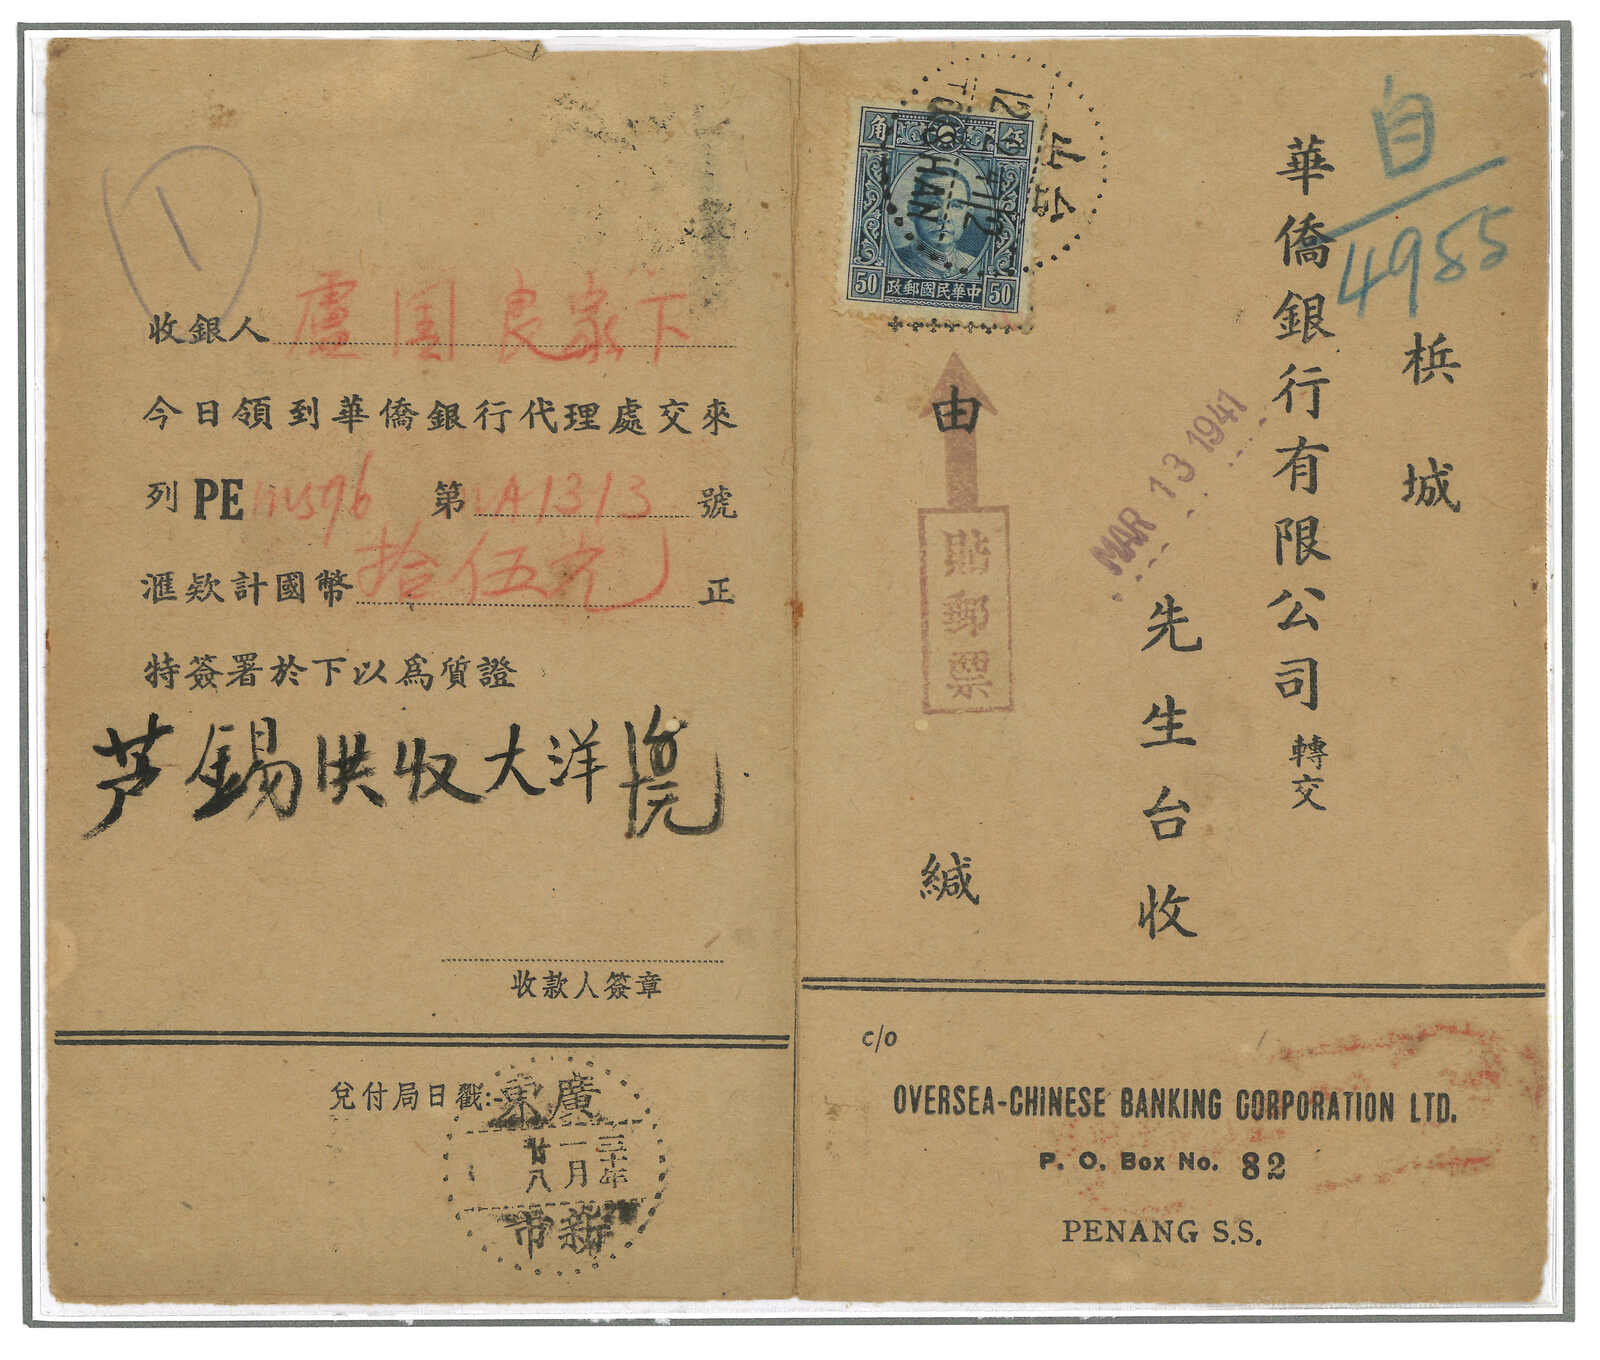 收銀人 盧国良家下
今日領到華僑銀行代理處交來
列PE 第 1313 號
滙欵計國幣 拾伍元 正
特簽署於下以爲质證
芦錫洪收大洋
收款人簽章
兌付局日戳:
廣東
三十年
一月
廿八
新市
自
4955
梹城
華僑銀行有限公司 轉交
先生台收
MAR 13 1941
由
緘
貼郵票
伍角
50 中華民國郵政 50
台山
12
41
HAN
c/o
OVERSEA-CHINESE BANKING CORPORATION LTD.
P. O. Box No. 82
PENANG S.S.